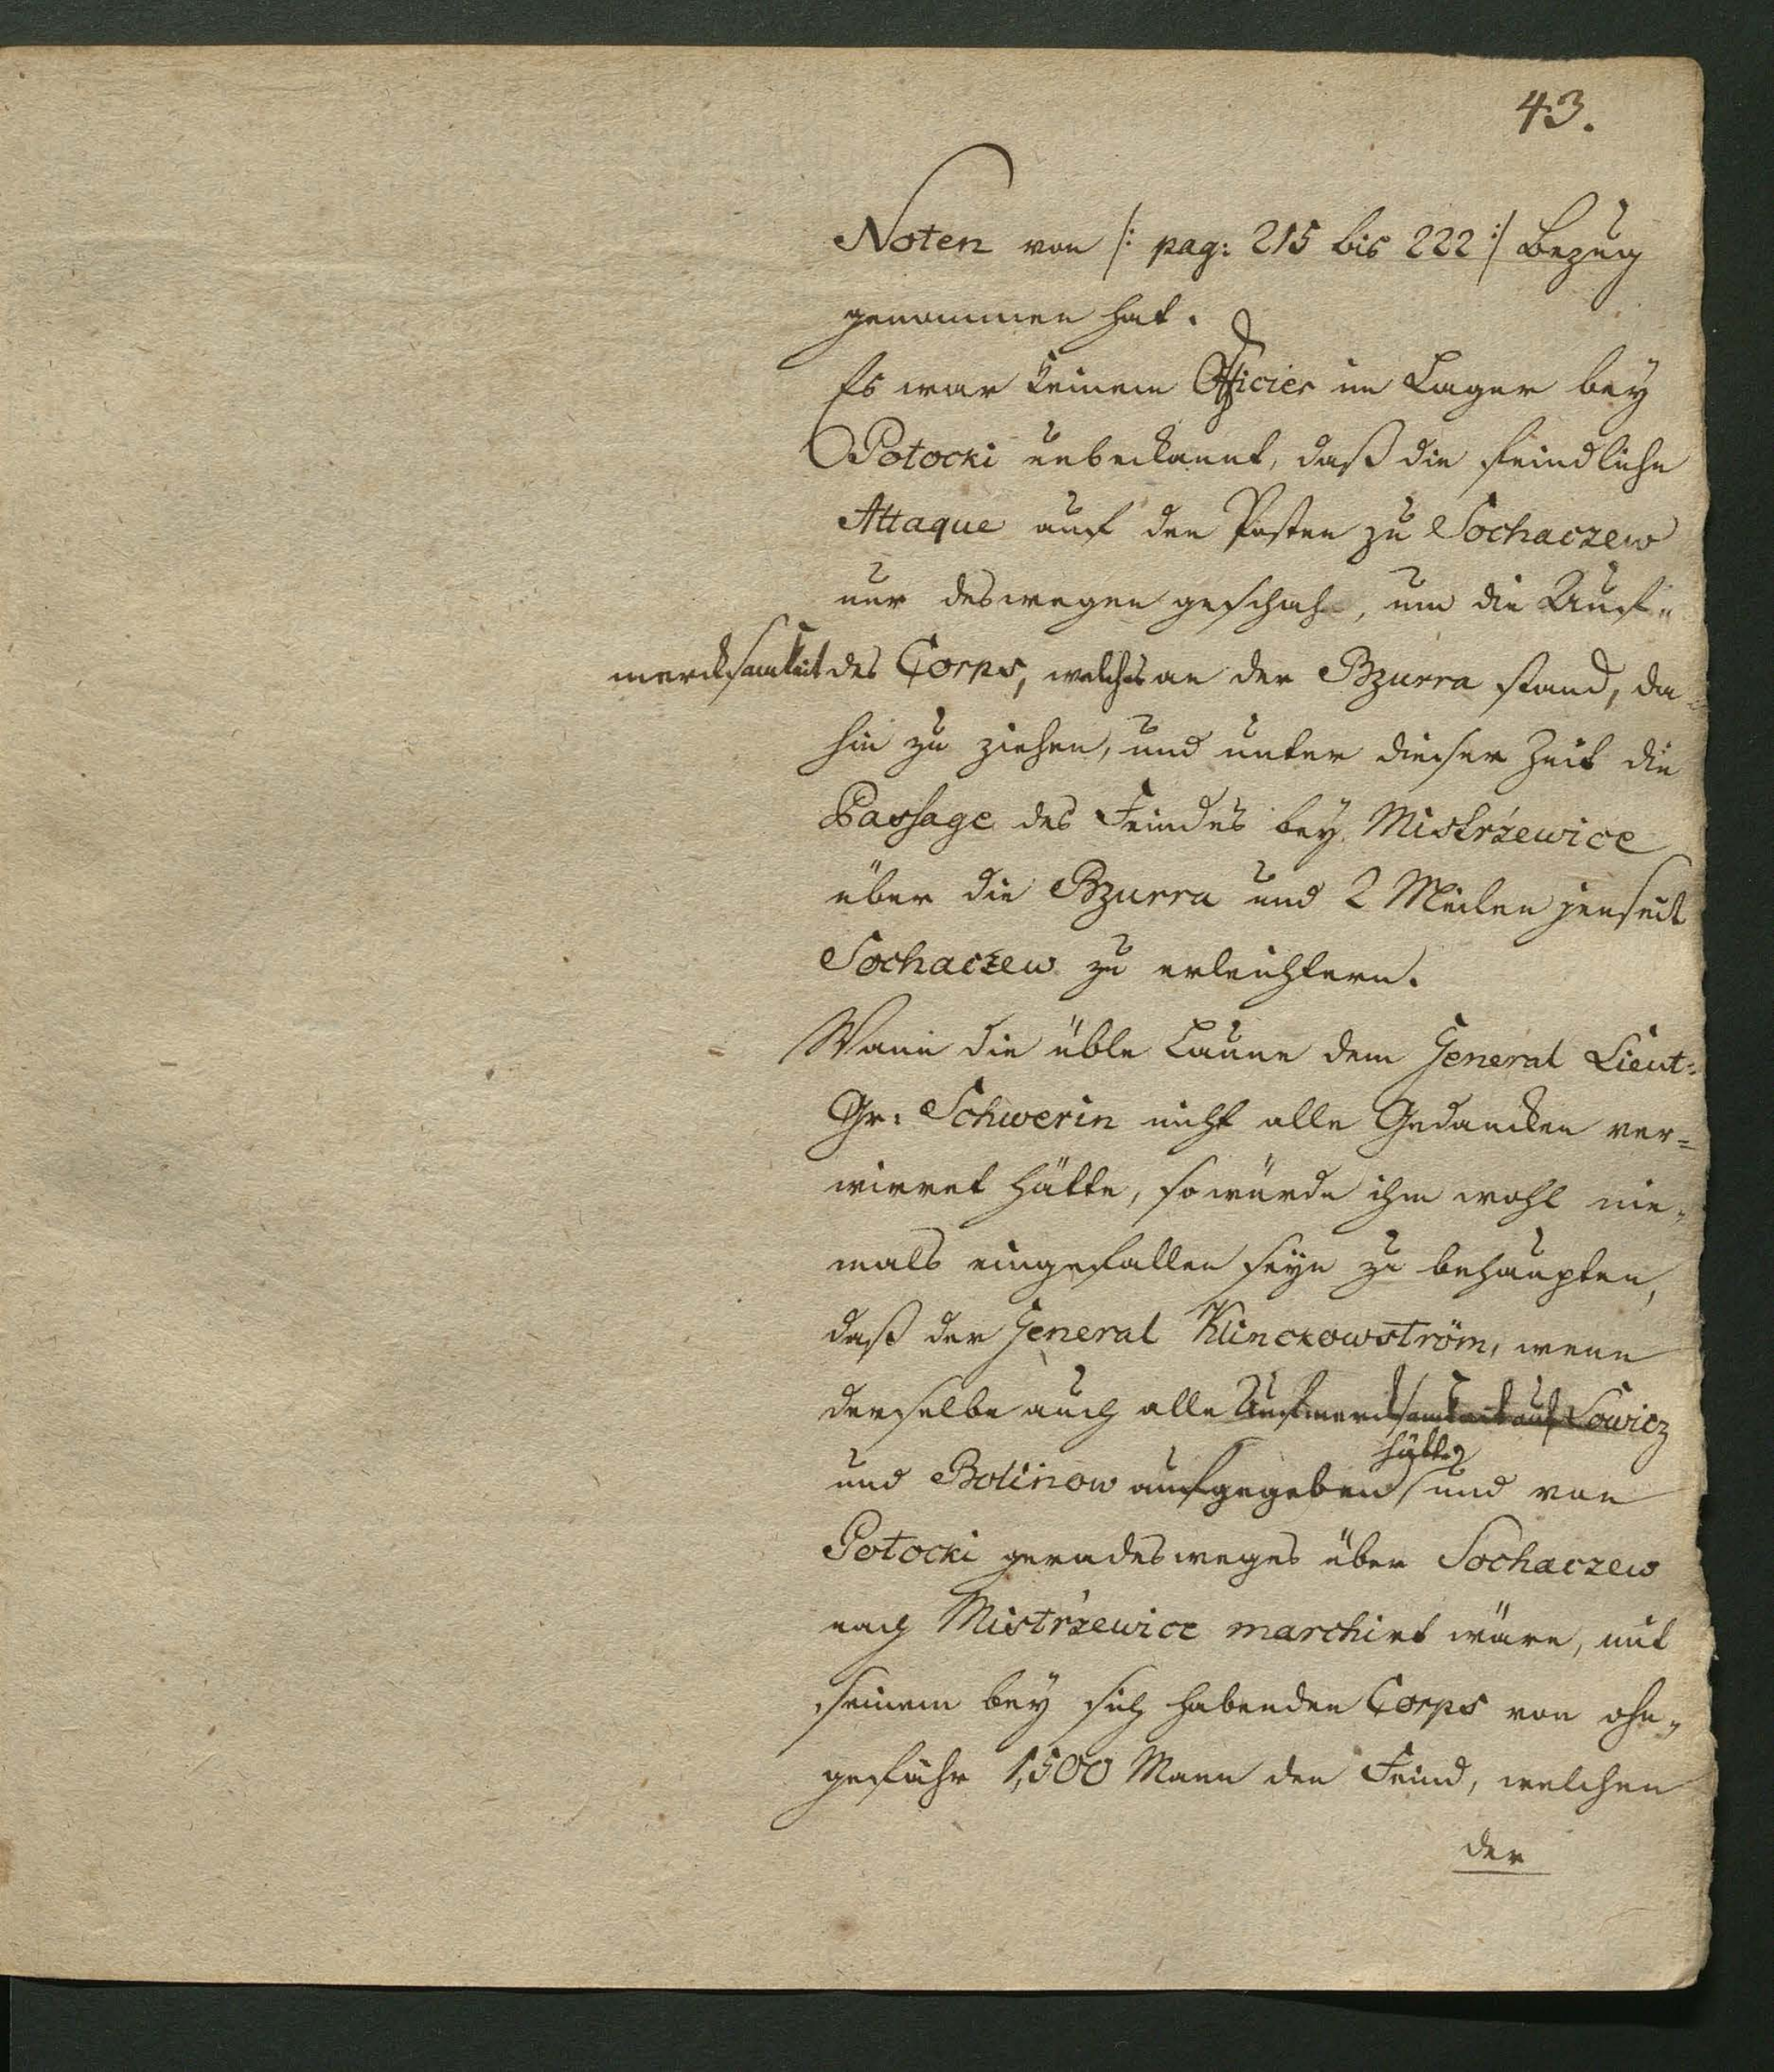 43.
Noten von /: pag: 215 bis 222 :/ Bezug
genommen hat.
Es war keinem Officier im Lager bey
Potocki unbekannt, daß die feindliche
Attaque auf den Posten zu Sochaczew
nur deswegen geschah, um die Auf„
mercksamkeit des Corps, welches an der Bzurra stand, da
hin zu ziehen, und unter dieser Zeit die
Passage des Feindes bey Mistrżewice
über die Bzurra und 2 Meilen jenseit
Sochaczew zu erleichtern.
Wann die üble Laune dem General Lieut:
Gr: Schwerin nicht alle Gedancken ver=
wirret hätte, so würde ihm wohl nie„
mals eingefallen seyn zu behaupten,
daß der General Klinckowström, wenn
derselbe auch alle Aufmercksamkeit auf Lowicz
und Bolinow aufgegeben hätte und von
Potocki geradesweges über Sochaczew
nach Mistrżewice marchirt wäre, mit
seinem bey sich habenden Corps von ohn„
gefähr 1,500 Mann den Feind, welchen
der